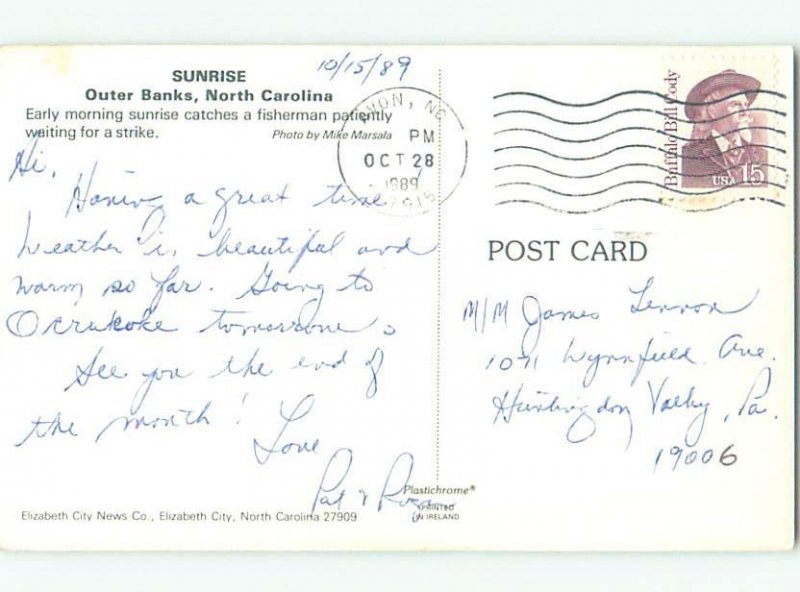 SUNRISE
Outer Banks, North Carolina
Early morning sunrise catches a fisherman patiently
waiting for a strike.
Photo by Mike Marsala
10/15/89
Hi,
Having a great time!
Weather is beautiful and
warm so far. Going to
Ocrukoke tomorrow.
See you the end of
the month!
Love
Pat & Roger
Elizabeth City News Co., Elizabeth City, North Carolina 27909
AVON, NC
PM
OCT 28
1989
27915
Buffalo Bill Cody
USA 15
POST CARD
M/M James Lennon
1071 Wynnfield Ave.
Huntingdon Valley, Pa.
19006
Plastichrome®
PRINTED
IN IRELAND